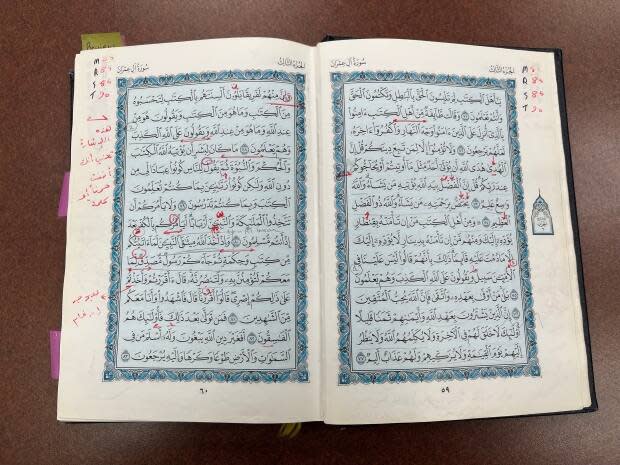 الجزء الثالث
سورة آل عمران
يَٰٓأَهْلَ ٱلْكِتَٰبِ لِمَ تَلْبِسُونَ ٱلْحَقَّ بِٱلْبَٰطِلِ وَتَكْتُمُونَ ٱلْحَقَّ
وَأَنتُمْ تَعْلَمُونَ ۝٧١ وَقَالَت طَّآئِفَةٌ مِّنْ أَهْلِ ٱلْكِتَٰبِ ءَامِنُوا۟
بِٱلَّذِىٓ أُنزِلَ عَلَى ٱلَّذِينَ ءَامَنُوا۟ وَجْهَ ٱلنَّهَارِ وَٱكْفُرُوٓا۟ ءَاخِرَهُۥ
لَعَلَّهُمْ يَرْجِعُونَ ۝٧٢ وَلَا تُؤْمِنُوٓا۟ إِلَّا لِمَن تَبِعَ دِينَكُمْ قُلْ إِنَّ
ٱلْهُدَىٰ هُدَى ٱللَّهِ أَن يُؤْتَىٰٓ أَحَدٌ مِّثْلَ مَآ أُوتِيتُمْ أَوْ يُحَآجُّوكُمْ
عِندَ رَبِّكُمْ قُلْ إِنَّ ٱلْفَضْلَ بِيَدِ ٱللَّهِ يُؤْتِيهِ مَن يَشَآءُ وَٱللَّهُ
وَٰسِعٌ عَلِيمٌ ۝٧٣ يَخْتَصُّ بِرَحْمَتِهِۦ مَن يَشَآءُ وَٱللَّهُ ذُو ٱلْفَضْلِ
ٱلْعَظِيمِ ۝٧٤ وَمِنْ أَهْلِ ٱلْكِتَٰبِ مَنْ إِن تَأْمَنْهُ بِقِنطَارٍ
يُؤَدِّهِۦٓ إِلَيْكَ وَمِنْهُم مَّنْ إِن تَأْمَنْهُ بِدِينَارٍ لَّا يُؤَدِّهِۦٓ إِلَيْكَ
إِلَّا مَا دُمْتَ عَلَيْهِ قَآئِمًا ذَٰلِكَ بِأَنَّهُمْ قَالُوا۟ لَيْسَ عَلَيْنَا فِى
ٱلْأُمِّيِّـۧنَ سَبِيلٌ وَيَقُولُونَ عَلَى ٱللَّهِ ٱلْكَذِبَ وَهُمْ يَعْلَمُونَ ۝٧٥
بَلَىٰ مَنْ أَوْفَىٰ بِعَهْدِهِۦ وَٱتَّقَىٰ فَإِنَّ ٱللَّهَ يُحِبُّ ٱلْمُتَّقِينَ ۝٧٦
إِنَّ ٱلَّذِينَ يَشْتَرُونَ بِعَهْدِ ٱللَّهِ وَأَيْمَٰنِهِمْ ثَمَنًا قَلِيلًا
أُو۟لَٰٓئِكَ لَا خَلَٰقَ لَهُمْ فِى ٱلْءَاخِرَةِ وَلَا يُكَلِّمُهُمُ ٱللَّهُ وَلَا يَنظُرُ
إِلَيْهِمْ يَوْمَ ٱلْقِيَٰمَةِ وَلَا يُزَكِّيهِمْ وَلَهُمْ عَذَابٌ أَلِيمٌ ۝٧٧
٥٩
الجزء الثالث
سورة آل عمران
وَإِنَّ مِنْهُمْ لَفَرِيقًا يَلْوُۥنَ أَلْسِنَتَهُم بِٱلْكِتَٰبِ لِتَحْسَبُوهُ
مِنَ ٱلْكِتَٰبِ وَمَا هُوَ مِنَ ٱلْكِتَٰبِ وَيَقُولُونَ هُوَ مِنْ
عِندِ ٱللَّهِ وَمَا هُوَ مِنْ عِندِ ٱللَّهِ وَيَقُولُونَ عَلَى ٱللَّهِ ٱلْكَذِبَ
وَهُمْ يَعْلَمُونَ ۝٧٨ مَا كَانَ لِبَشَرٍ أَن يُؤْتِيَهُ ٱللَّهُ ٱلْكِتَٰبَ
وَٱلْحُكْمَ وَٱلنُّبُوَّةَ ثُمَّ يَقُولَ لِلنَّاسِ كُونُوا۟ عِبَادًا لِّى مِن
دُونِ ٱللَّهِ وَلَٰكِن كُونُوا۟ رَبَّٰنِيِّـۧنَ بِمَا كُنتُمْ تُعَلِّمُونَ
ٱلْكِتَٰبَ وَبِمَا كُنتُمْ تَدْرُسُونَ ۝٧٩ وَلَا يَأْمُرَكُمْ أَن
تَتَّخِذُوا۟ ٱلْمَلَٰٓئِكَةَ وَٱلنَّبِيِّـۧنَ أَرْبَابًا أَيَأْمُرُكُم بِٱلْكُفْرِ بَعْدَ
إِذْ أَنتُم مُّسْلِمُونَ ۝٨٠ وَإِذْ أَخَذَ ٱللَّهُ مِيثَٰقَ ٱلنَّبِيِّـۧنَ لَمَآ ءَاتَيْتُكُم
مِّن كِتَٰبٍ وَحِكْمَةٍ ثُمَّ جَآءَكُمْ رَسُولٌ مُّصَدِّقٌ لِّمَا
مَعَكُمْ لَتُؤْمِنُنَّ بِهِۦ وَلَتَنصُرُنَّهُۥ قَالَ ءَأَقْرَرْتُمْ وَأَخَذْتُمْ
عَلَىٰ ذَٰلِكُمْ إِصْرِى قَالُوٓا۟ أَقْرَرْنَا قَالَ فَٱشْهَدُوا۟ وَأَنَا۠ مَعَكُم
مِّنَ ٱلشَّٰهِدِينَ ۝٨١ فَمَن تَوَلَّىٰ بَعْدَ ذَٰلِكَ فَأُو۟لَٰٓئِكَ هُمُ
ٱلْفَٰسِقُونَ ۝٨٢ أَفَغَيْرَ دِينِ ٱللَّهِ يَبْغُونَ وَلَهُۥٓ أَسْلَمَ مَن فِى
ٱلسَّمَٰوَٰتِ وَٱلْأَرْضِ طَوْعًا وَكَرْهًا وَإِلَيْهِ يُرْجَعُونَ ۝٨٣
٦٠
M
R
S
T
M
R
S
T
هذه
الإشارة